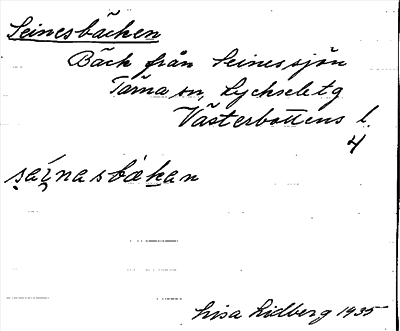 Seinesbäcken
Bäck från Seinessjön
Tärna sn, Lycksele tg
Västerbottens l.
4
sai̯nasbäkan
Lisa Lidberg 1935